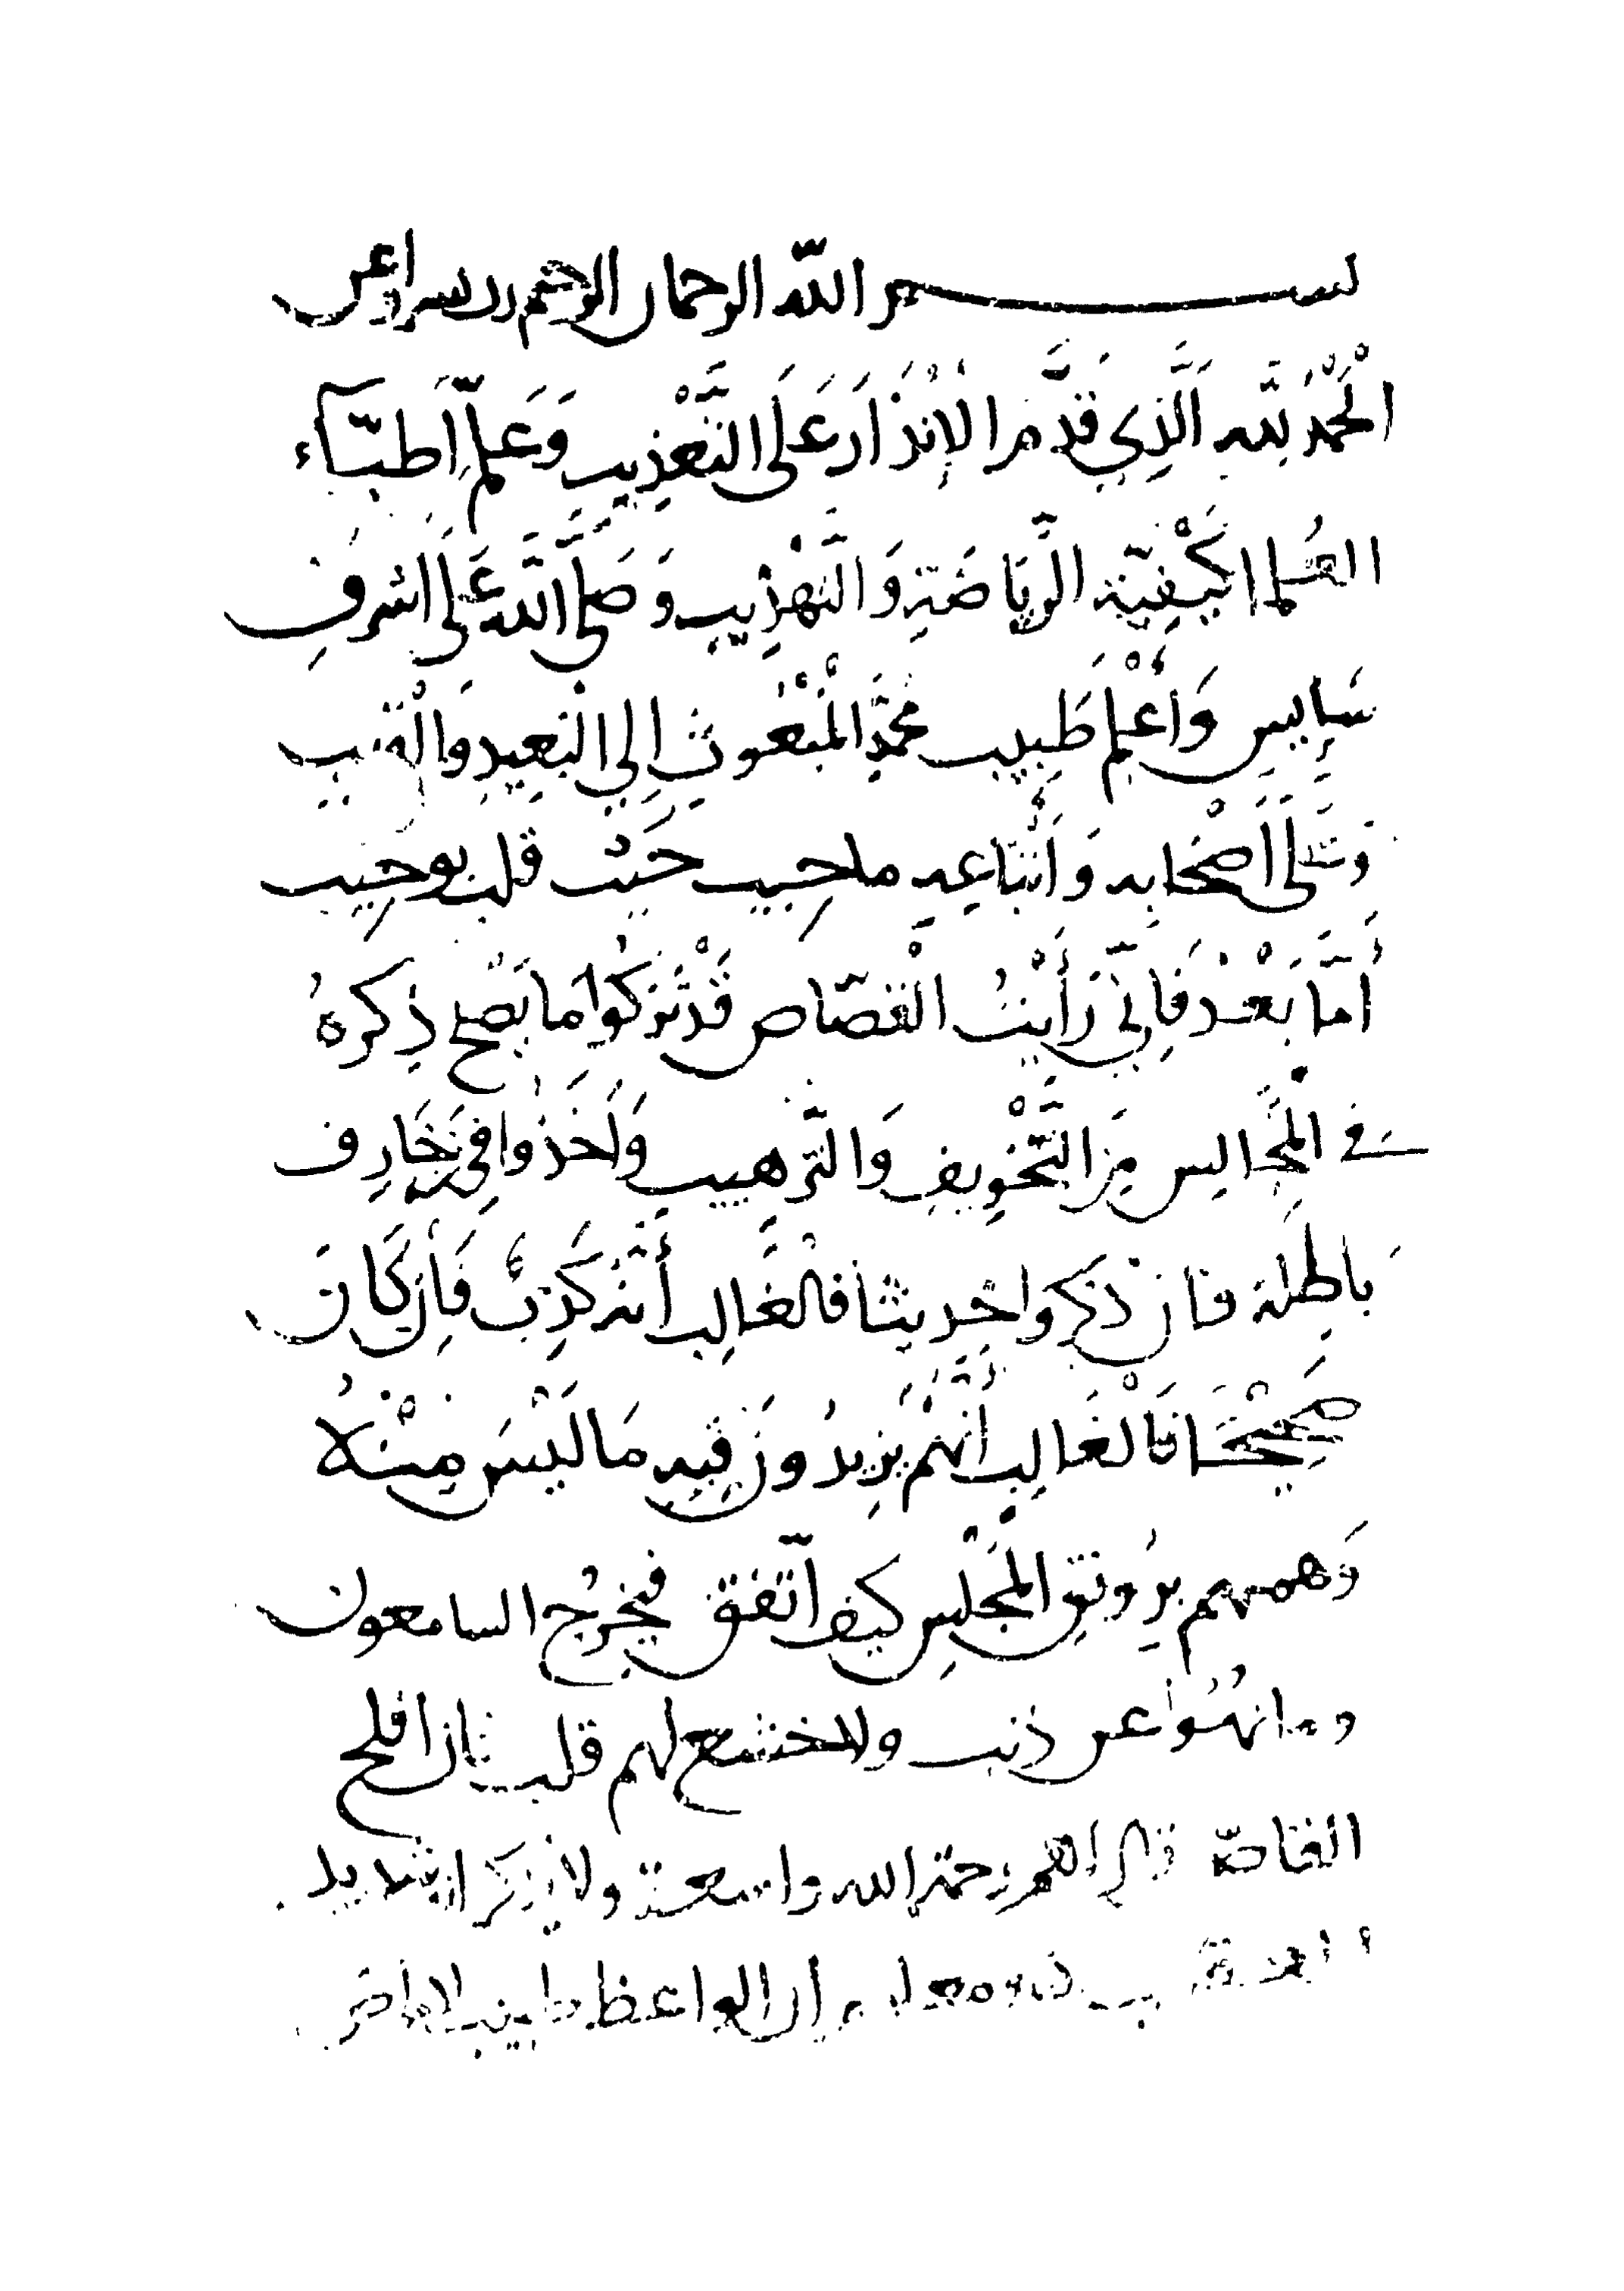 بسم الله الرحمان الرحيم رب يسر واعن
الْحَمْدُ لِلَّهِ الَّذِي قَدَّمَ الْإِنْذَارَ عَلَى التَّعْذِيبِ وَعَلَّمَ اَطِبَّاءَ
العُلماء كَيْفِيَّة الرِّيَاضَةِ وَالتَّهْذِيبِ وَصَلَّى اللَّهُ عَلَى اَشرفِ
سَايِسٍ وَأَعْلَمِ طَبِيبٍ مُحَمَّدٍ الْمَبْعُوثِ إِلَى الْبَعِيدِ وَالْقَرِيبِ
وَعَلَى اَصْحَابِهِ وَأَتْبَاعِهِ ماحِيبِ حَيْث قلب بوجيب
أَمَّا بَعْدُ فَاِنِّي رَأَيْتُ الْقصّاص قَدْ تَرَكُوا مَا يَصْلح ذِكرهُ
في الْمَجَالِسِ مِنَ التَّخْوِيفِ وَالتَّرهيبِ وَاَخَذُوا فِي زَخَارِف
بَاطِلة فان ذَكروا حَديثا فالْغَالِب أَنَّهُ كَذِبٌ فَإِن كَانَ
صَحِيْحًا فَالْغَالِب أَنَّهُمْ يَزِيدُونَ فِيهِ مَا لَيْسَ مِنْهُ
وَهمهم بِرُونَقِ الْمَجْلِسِ كيف اتّفق فيَخرُج السامعون
وما نُهُوا عن ذنب ولا خشع لهم قلب فان افلح
القاصّ قال لهم رحمة الله واسعة ولا يذكر انه شديد
العقاب ومعلوم ان الواعظ طبيب الامراض